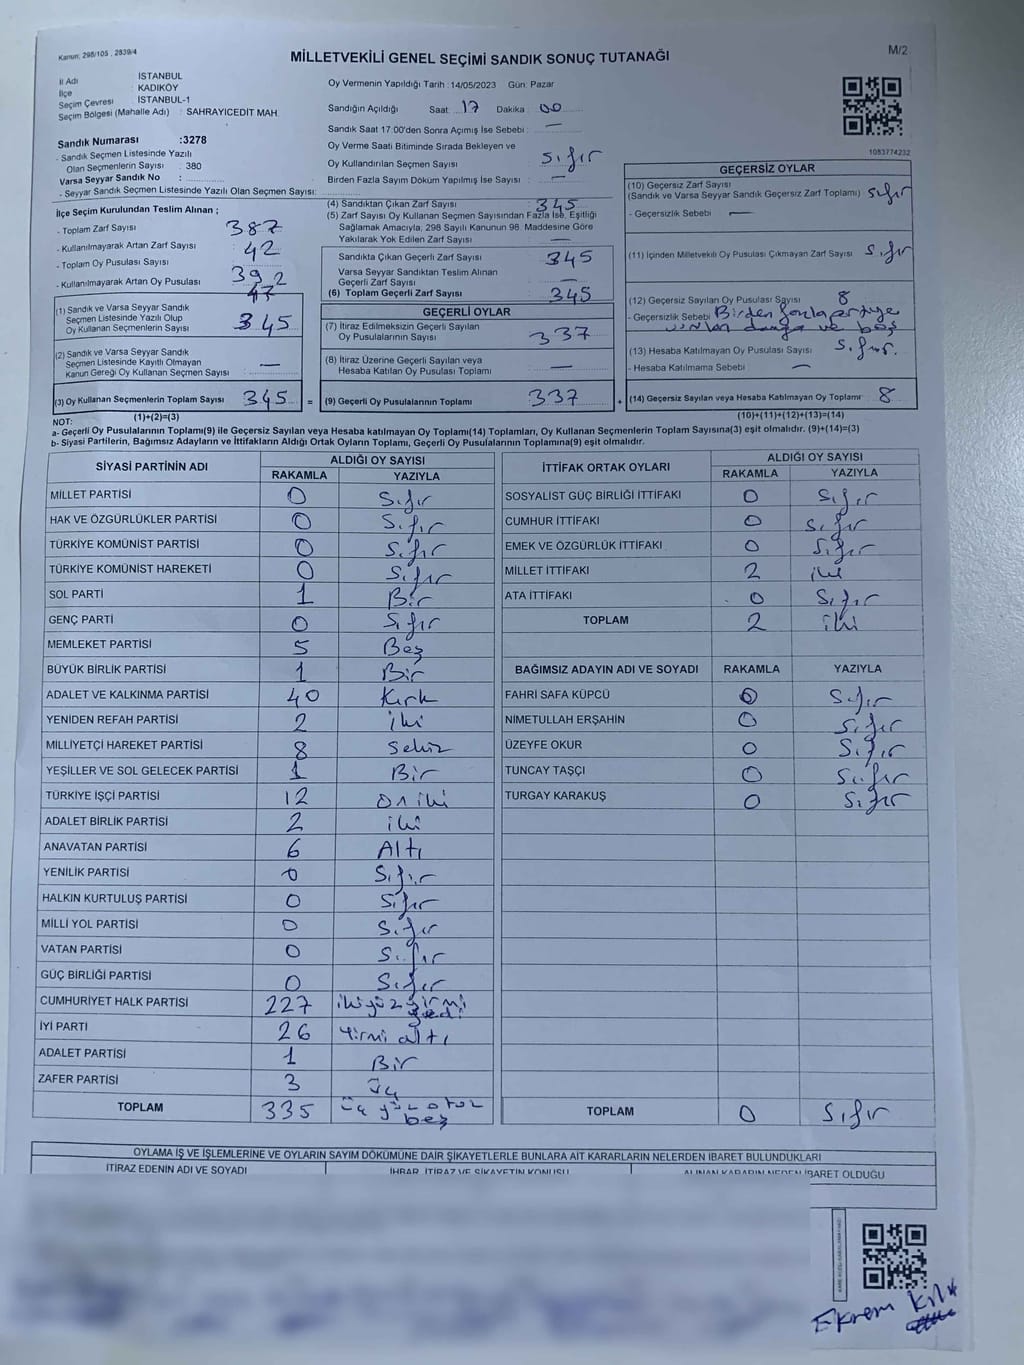 Kanun: 298/105 , 2839/4
MİLLETVEKİLİ GENEL SEÇİMİ SANDIK SONUÇ TUTANAĞI
M/2
İl Adı İSTANBUL
İlçe KADIKÖY
Seçim Çevresi İSTANBUL-1
Seçim Bölgesi (Mahalle Adı) : SAHRAYICEDİT MAH.
Sandık Numarası :3278
- Sandık Seçmen Listesinde Yazılı
Olan Seçmenlerin Sayısı : 380
Varsa Seyyar Sandık No :
- Seyyar Sandık Seçmen Listesinde Yazılı Olan Seçmen Sayısı:
Oy Vermenin Yapıldığı Tarih : 14/05/2023 Gün: Pazar
Sandığın Açıldığı Saat: 17 Dakika : 00
Sandık Saat 17:00'den Sonra Açımış İse Sebebi : —
Oy Verme Saati Bitiminde Sırada Bekleyen ve
Oy Kullandırılan Seçmen Sayısı : Sıfır
Birden Fazla Sayım Döküm Yapılmış İse Sayısı : —
1083774232
İlçe Seçim Kurulundan Teslim Alınan ;
- Toplam Zarf Sayısı : 387
- Kullanılmayarak Artan Zarf Sayısı : 42
- Toplam Oy Pusulası Sayısı : 392
- Kullanılmayarak Artan Oy Pusulası : 47
(1) Sandık ve Varsa Seyyar Sandık
Seçmen Listesinde Yazılı Olup
Oy Kullanan Seçmenlerin Sayısı : 345
(2) Sandık ve Varsa Seyyar Sandık
Seçmen Listesinde Kayıtlı Olmayan
Kanun Gereği Oy Kullanan Seçmen Sayısı : —
(3) Oy Kullanan Seçmenlerin Toplam Sayısı : 345 =
(1)+(2)=(3)
(4) Sandıktan Çıkan Zarf Sayısı : 345
(5) Zarf Sayısı Oy Kullanan Seçmen Sayısından Fazla İse, Eşitliği
Sağlamak Amacıyla, 298 Sayılı Kanunun 98. Maddesine Göre
Yakılarak Yok Edilen Zarf Sayısı : —
Sandıkta Çıkan Geçerli Zarf Sayısı : 345
Varsa Seyyar Sandıktan Teslim Alınan
Geçerli Zarf Sayısı :
(6) Toplam Geçerli Zarf Sayısı : 345
GEÇERLİ OYLAR
(7) İtiraz Edilmeksizin Geçerli Sayılan
Oy Pusulalarının Sayısı : 337
(8) İtiraz Üzerine Geçerli Sayılan veya
Hesaba Katılan Oy Pusulası Toplamı : —
(9) Geçerli Oy Pusulalarının Toplamı : 337 +
GEÇERSİZ OYLAR
(10) Geçersiz Zarf Sayısı
(Sandık ve Varsa Seyyar Sandık Geçersiz Zarf Toplamı) : Sıfır
- Geçersizlik Sebebi : —
(11) İçinden Milletvekili Oy Pusulası Çıkmayan Zarf Sayısı : Sıfır
(12) Geçersiz Sayılan Oy Pusulası Sayısı : 8
- Geçersizlik Sebebi : Birden fazla partiye
ve boş
(13) Hesaba Katılmayan Oy Pusulası Sayısı : Sıfır.
- Hesaba Katılmama Sebebi : —
(14) Geçersiz Sayılan veya Hesaba Katılmayan Oy Toplamı : 8
(10)+(11)+(12)+(13)=(14)
NOT:
a- Geçerli Oy Pusulalarının Toplamı(9) ile Geçersiz Sayılan veya Hesaba katılmayan Oy Toplamı(14) Toplamları, Oy Kullanan Seçmenlerin Toplam Sayısına(3) eşit olmalıdır. (9)+(14)=(3)
b- Siyasi Partilerin, Bağımsız Adayların ve İttifakların Aldığı Ortak Oyların Toplamı, Geçerli Oy Pusulalarının Toplamına(9) eşit olmalıdır.
SİYASİ PARTİNİN ADI ALDIĞI OY SAYISI
RAKAMLA YAZIYLA
MİLLET PARTİSİ 0 Sıfır
HAK VE ÖZGÜRLÜKLER PARTİSİ 0 Sıfır
TÜRKİYE KOMÜNİST PARTİSİ 0 Sıfır
TÜRKİYE KOMÜNİST HAREKETİ 0 Sıfır
SOL PARTİ 1 Bir
GENÇ PARTİ 0 Sıfır
MEMLEKET PARTİSİ 5 Beş
BÜYÜK BİRLİK PARTİSİ 1 Bir
ADALET VE KALKINMA PARTİSİ 40 Kırk
YENİDEN REFAH PARTİSİ 2 iki
MİLLİYETÇİ HAREKET PARTİSİ 8 Sekiz
YEŞİLLER VE SOL GELECEK PARTİSİ 1 Bir
TÜRKİYE İŞÇİ PARTİSİ 12 On iki
ADALET BİRLİK PARTİSİ 2 iki
ANAVATAN PARTİSİ 6 Altı
YENİLİK PARTİSİ 0 Sıfır
HALKIN KURTULUŞ PARTİSİ 0 Sıfır
MİLLİ YOL PARTİSİ 0 Sıfır
VATAN PARTİSİ 0 Sıfır
GÜÇ BİRLİĞİ PARTİSİ 0 Sıfır
CUMHURİYET HALK PARTİSİ 227 ikiyüz yirmi yedi
İYİ PARTİ 26 Yirmi altı
ADALET PARTİSİ 1 Bir
ZAFER PARTİSİ 3 üç
TOPLAM 335 üç yüz otuz beş
İTTİFAK ORTAK OYLARI ALDIĞI OY SAYISI
RAKAMLA YAZIYLA
SOSYALİST GÜÇ BİRLİĞİ İTTİFAKI 0 Sıfır
CUMHUR İTTİFAKI 0 Sıfır
EMEK VE ÖZGÜRLÜK İTTİFAKI 0 Sıfır
MİLLET İTTİFAKI 2 iki
ATA İTTİFAKI 0 Sıfır
TOPLAM 2 iki
BAĞIMSIZ ADAYIN ADI VE SOYADI RAKAMLA YAZIYLA
FAHRİ SAFA KÜPCÜ 0 Sıfır
NİMETULLAH ERŞAHİN 0 Sıfır
ÜZEYFE OKUR 0 Sıfır
TUNCAY TAŞÇI 0 Sıfır
TURGAY KARAKUŞ 0 Sıfır
TOPLAM 0 Sıfır
OYLAMA İŞ VE İŞLEMLERİNE VE OYLARIN SAYIM DÖKÜMÜNE DAİR ŞİKAYETLERLE BUNLARA AİT KARARLARIN NELERDEN İBARET BULUNDUKLARI
İTİRAZ EDENİN ADI VE SOYADI İHBAR, İTİRAZ VE ŞİKAYETİN KONUSU ALINAN KARARIN NEDEN İBARET OLDUĞU
Ekrem